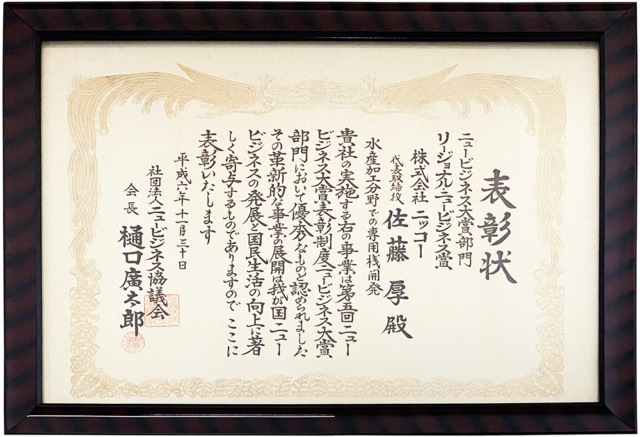 表彰状
ニュービジネス大賞部門
リージョナルニュービジネス賞
株式会社 ニッコー
代表取締役 佐藤 厚 殿
水産加工分野での専用機開発
貴社の実施する右の事業は第五回ニュー
ビジネス大賞表彰制度ニュービジネス大賞
部門において優秀なものと認められました
その革新的な事業の展開は我が国ニュー
ビジネスの発展と国民生活の向上に著
しく寄与するものでありますので ここに
表彰いたします
平成六年十一月三十日
社団法人ニュービジネス協議会
会長 樋口廣太郎